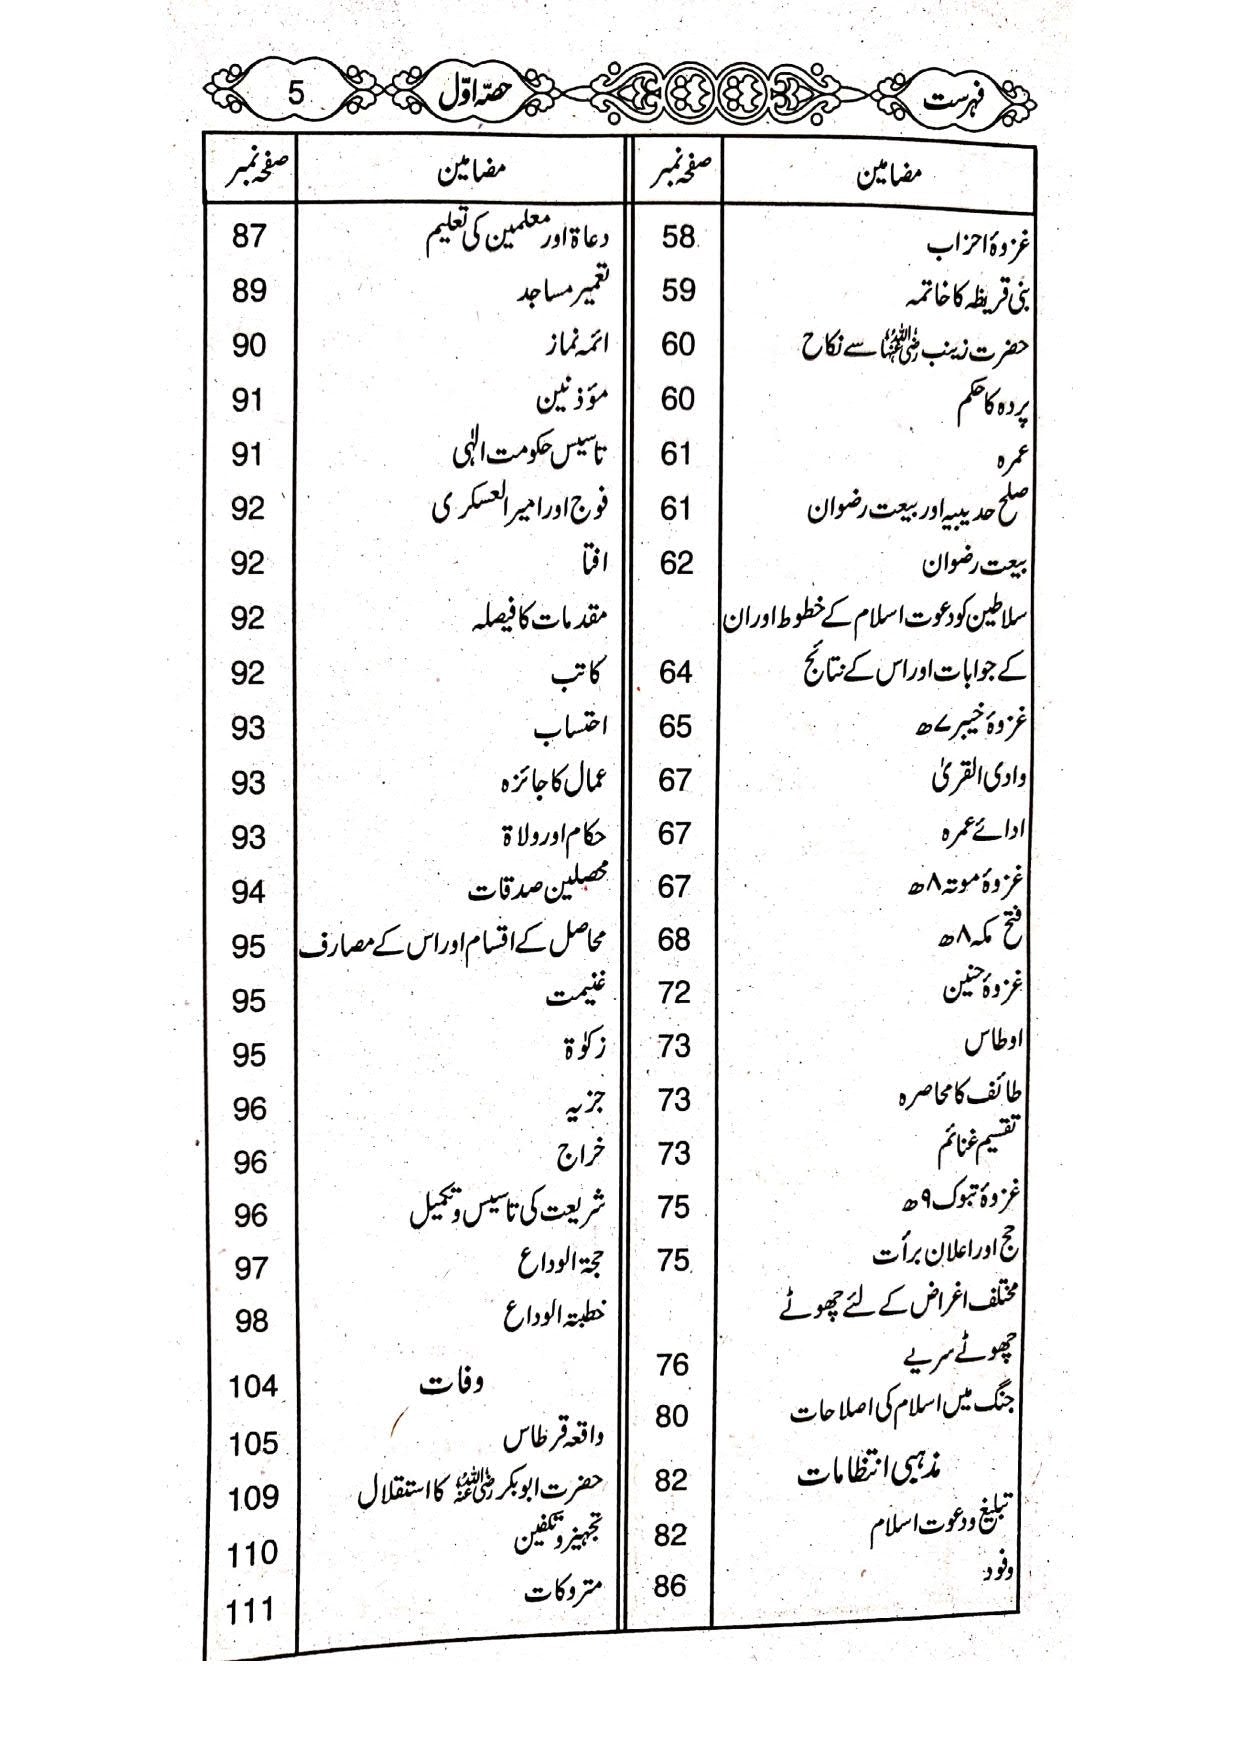 فہرست حصہ اوّل 5
مضامین صفحہ نمبر
غزوۂ احزاب 58
بنی قریظہ کا خاتمہ 59
حضرت زینب رضی اللہ عنہا سے نکاح 60
پردہ کا حکم 60
عمرہ 61
صلح حدیبیہ اور بیعت رضوان 61
بیعت رضوان 62
سلاطین کو دعوت اسلام کے خطوط اور ان
کے جوابات اور اس کے نتائج 64
غزوۂ خیبر ۷ھ 65
وادی القریٰ 67
ادائے عمرہ 67
غزوۂ موتہ ۸ھ 67
فتح مکہ ۸ھ 68
غزوۂ حنین 72
اوطاس 73
طائف کا محاصرہ 73
تقسیم غنائم 73
غزوۂ تبوک ۹ھ 75
حج اور اعلان برأت 75
مختلف اغراض کے لئے چھوٹے
چھوٹے سریے 76
جنگ میں اسلام کی اصلاحات 80
مذہبی انتظامات 82
تبلیغ و دعوت اسلام 82
وفود 86
مضامین صفحہ نمبر
دعاۃ اور معلمین کی تعلیم 87
تعمیر مساجد 89
ائمہ نماز 90
مؤذنین 91
تاسیس حکومت الٰہی 91
فوج اور امیر العسکری 92
افتا 92
مقدمات کا فیصلہ 92
کاتب 92
احتساب 93
عمال کا جائزہ 93
حکام اور ولاۃ 93
محصلین صدقات 94
محاصل کے اقسام اور اس کے مصارف 95
غنیمت 95
زکوٰۃ 95
جزیہ 96
خراج 96
شریعت کی تاسیس و تکمیل 96
حجۃ الوداع 97
خطبۃ الوداع 98
وفات 104
واقعہ قرطاس 105
حضرت ابوبکر رضی اللہ عنہ کا استقلال 109
تجہیز و تکفین 110
متروکات 111